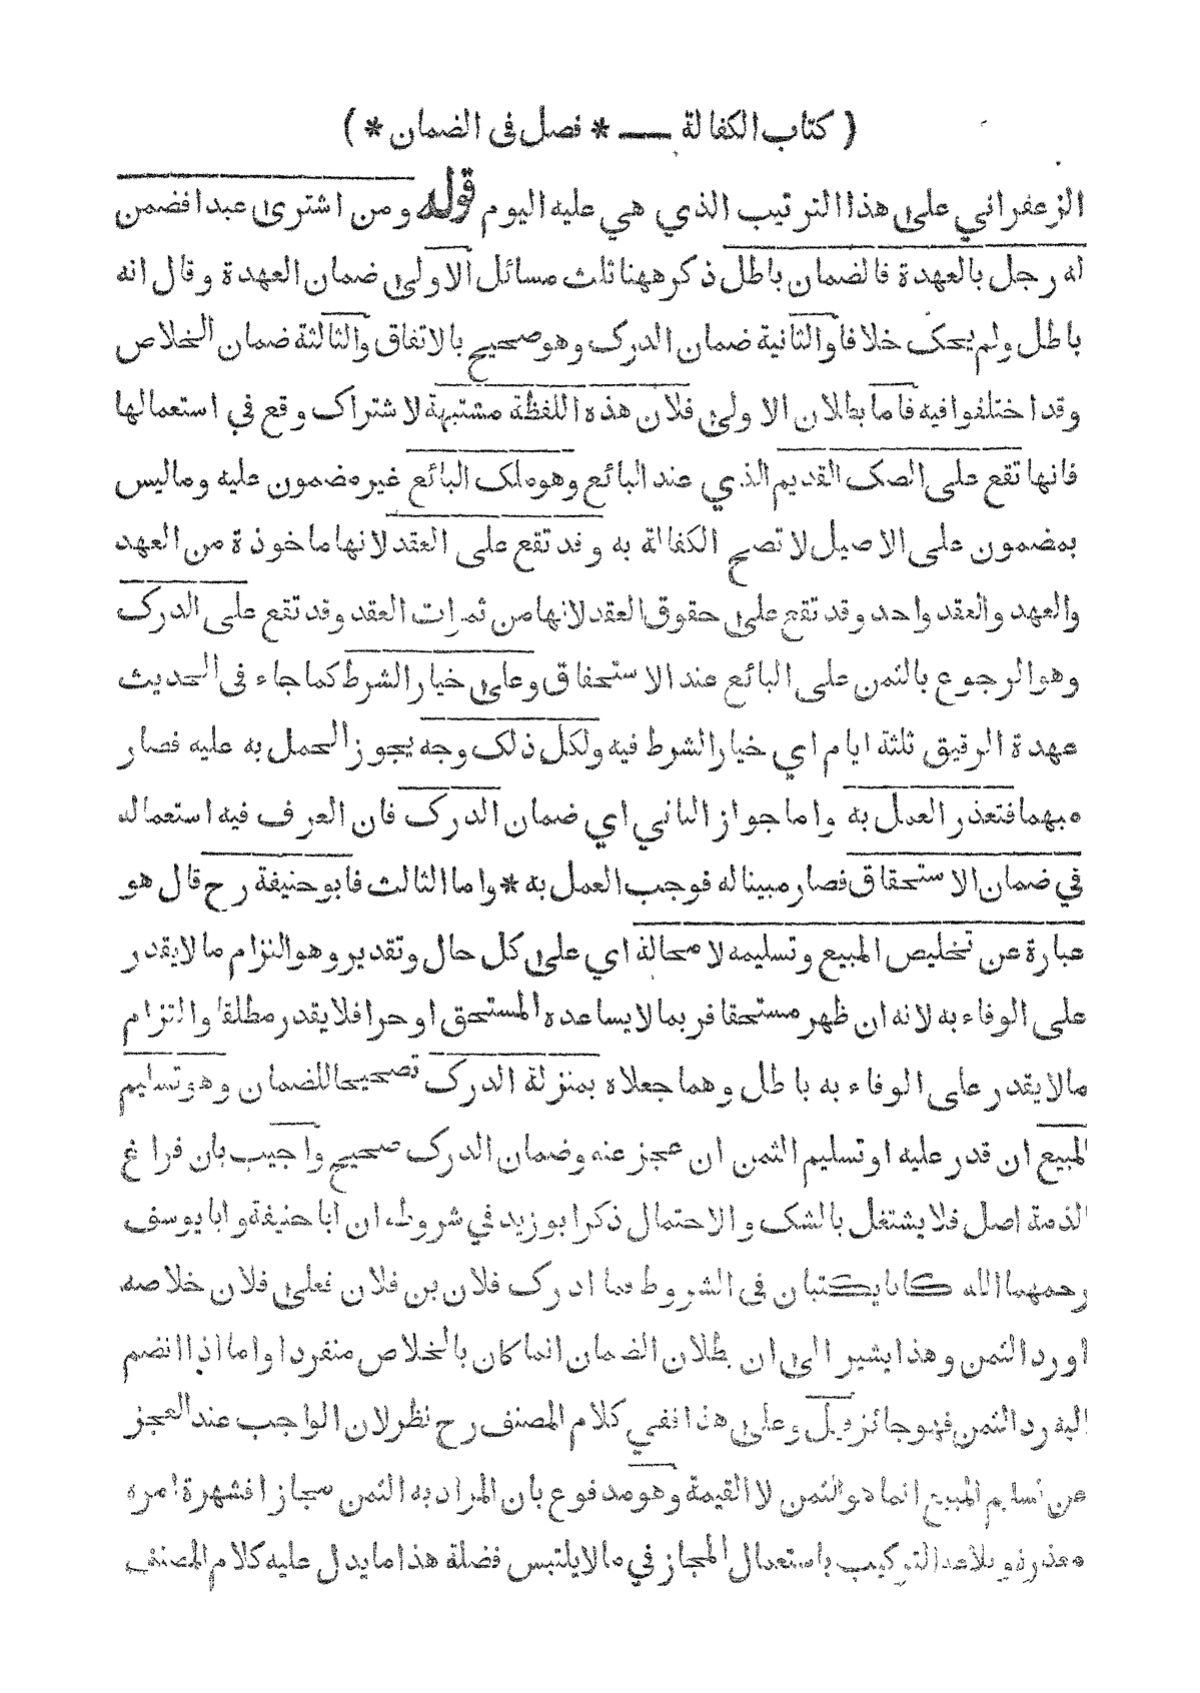 ( كتاب الكفالة ــــ * فصل فى الضمان * )
الزعفراني على هذا الترتيب الذي هي عليه اليوم قوله ومن اشترى عبدا فضمن
له رجل بالعهدة فالضمان باطل ذكر ههنا ثلث مسائل الاولى ضمان العهدة وقال انه
باطل ولم يحك خلافا والثانية ضمان الدرك وهو صحيح بالاتفاق والثالثة ضمان الخلاص
وقد اختلفوا فيه فاما بطلان الاولى فلان هذه اللفظة مشتبهة لاشتراك وقع في استعمالها
فانها تقع على الصك القديم الذي عند البائع وهو ملك البائع غير مضمون عليه وماليس
بمضمون على الاصيل لا تصح الكفالة به وقد تقع على العقد لانها ماخوذة من العهد
والعهد والعقد واحد وقد تقع على حقوق العقد لانها من ثمرات العقد وقد تقع على الدرك
وهو الرجوع بالثمن على البائع عند الاستحقاق وعلى خيار الشرط كما جاء فى الحديث
عهدة الرقيق ثلثة ايام اي خيار الشرط فيه ولكل ذلك وجه يجوز الحمل به عليه فصار
مبهما فتعذر العمل به واما جواز الثاني اي ضمان الدرك فان العرف فيه استعماله
في ضمان الاستحقاق فصار مبينا له فوجب العمل به * واما الثالث فابو حنيفة رح قال هو
عبارة عن تخليص المبيع وتسليمه لا محالة اي على كل حال وتقدير وهو التزام مالا يقدر
على الوفاء به لانه ان ظهر مستحقا فربما لا يساعده المستحق او حرا فلا يقدر مطلقا والتزام
مالا يقدر على الوفاء به باطل وهما جعلاه بمنزلة الدرك تصحيحا للضمان وهو تسليم
المبيع ان قدر عليه او تسليم الثمن ان عجز عنه وضمان الدرك صحيح واجيب بان فراغ
الذمة اصل فلا يشتغل بالشك والاحتمال ذكر ابو زيد في شروطه ان ابا حنيفة وابا يوسف
رحمهما الله كانا يكتبان فى الشروط فما ادرك فلان بن فلان فعلى فلان خلاصه
او رد الثمن وهذا يشير الى ان بطلان الضمان انما كان بالخلاص منفردا واما اذا انضم
اليه رد الثمن فهو جائز قيل وعلى هذا ففي كلام المصنف رح نظر لان الواجب عند العجز
عن تسليم المبيع انما هو الثمن لا القيمة وهو مدفوع بان المراد به الثمن مجازا فشهرة امره
معذرة التركيب باستعمال المجاز في مالا يلتبس فضلة هذا ما يدل عليه كلام المصنف